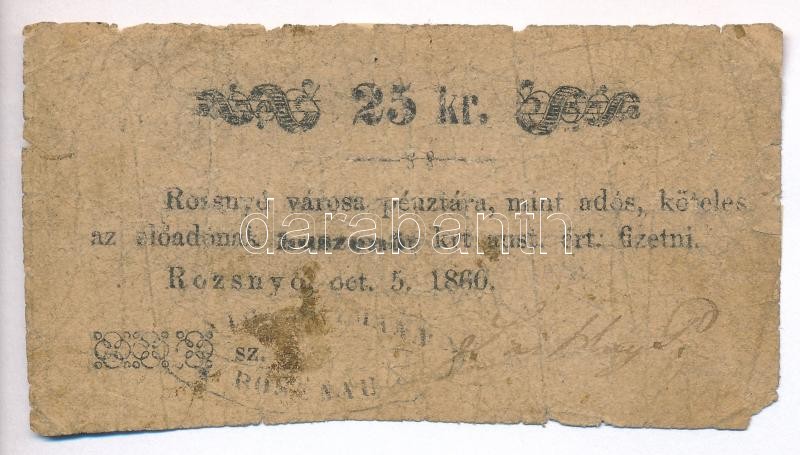 25 kr.
Rozsnyó városa pénztára, mint adós, köteles
az előadónak krt aust. ért. fizetni.
Rozsnyó, oct. 5. 1860.
sz.
ROSENAU
darabanth